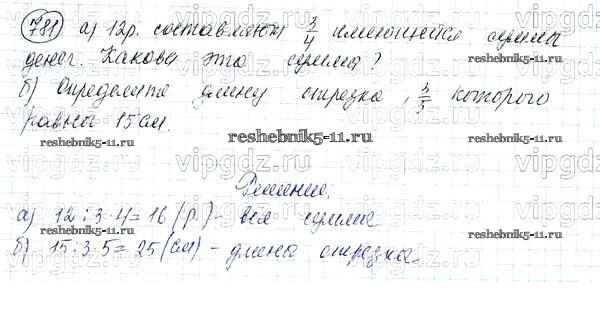 781 а) 12р. составляют 3/4 имеющейся суммы
денег. Какова эта сумма?
б) Определите длину отрезка, 3/5 которого
равны 15 см.
Решение.
а) 12:3·4=16 (р.) - вся сумма
б) 15:3·5=25 (см) - длина отрезка.
vipgdz.ru
reshebnik5-11.ru
reshebnik5-11.ru
reshebnik5-11.ru
reshebnik5-11.ru
reshebnik5-11.ru